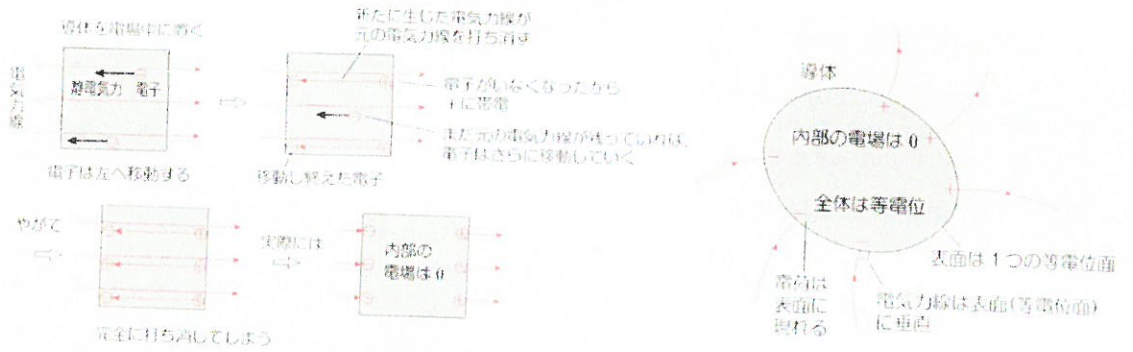 導体を電場中に置く
電気力線
静電気力 電子
電子は左へ移動する
新たに生じた電気力線が
元の電気力線を打ち消す
電子がいなくなったから
帯電
まだ元の電気力線が残っていれば、
電子はさらに移動していく
移動し終えた電子
やがて
完全に打ち消してしまう
実際には
内部の
電場は 0
導体
内部の電場は 0
全体は等電位
表面は 1 つの等電位面
電荷は
表面に
現れる
電気力線は表面(等電位面)
に垂直